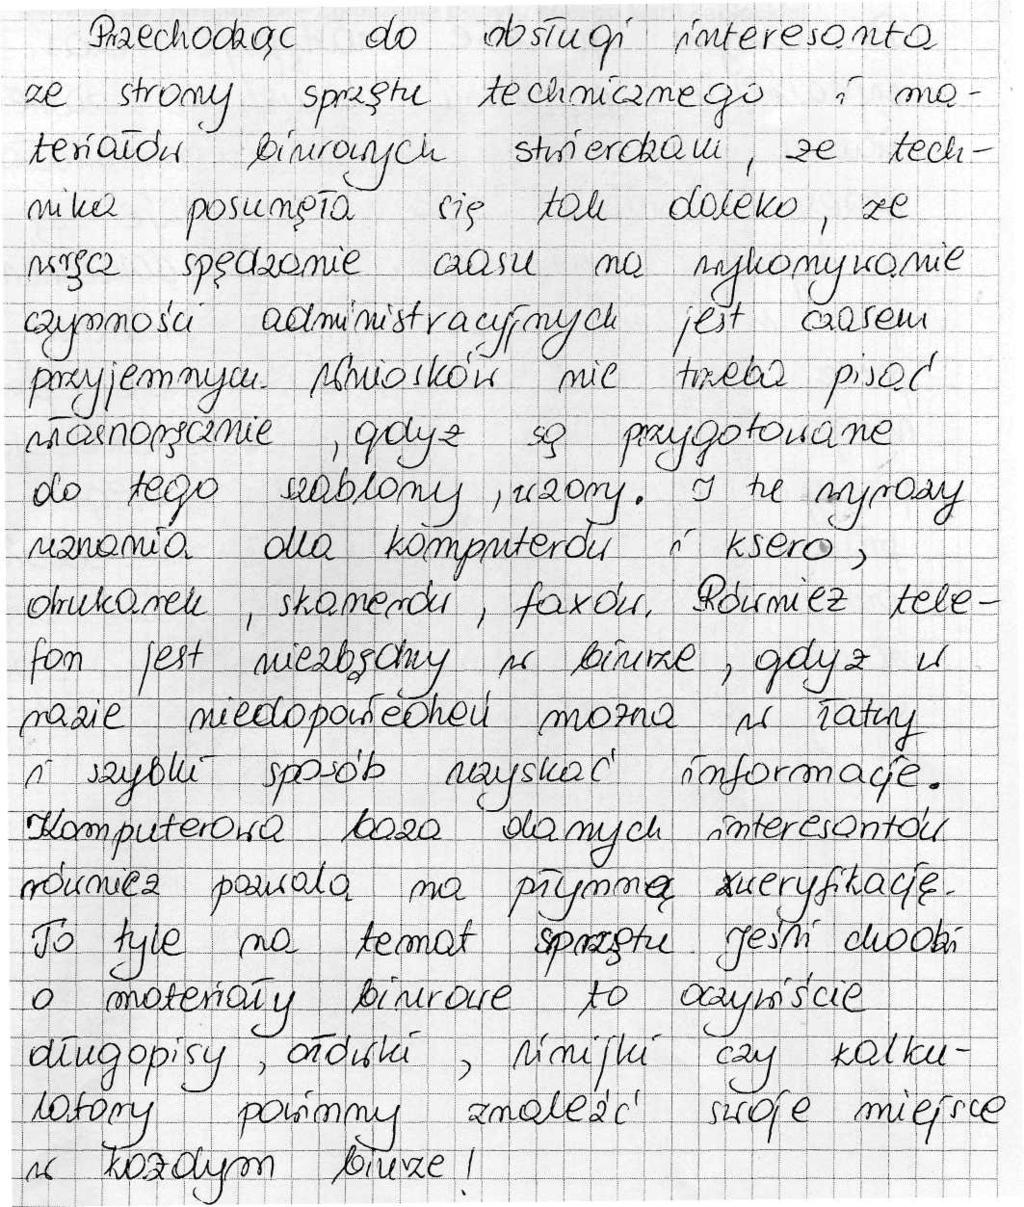 Przechodząc do obsługi interesanta
ze strony sprzętu technicznego i ma-
teriałów biurowych stwierdzam, że tech-
nika posunęła się tak daleko, że
wręcz spędzanie czasu na wykonywanie
czynności administracyjnych jest czasem
przyjemnym. Wniosków nie trzeba pisać
własnoręcznie, gdyż są przygotowane
do tego szablony, wzory. I tu wyrazy
uznania dla komputerów i ksero,
drukarek, skanerów, faxów. Również tele-
fon jest niezbędny w biurze, gdyż w
razie niedopowiedzeń można w łatwy
i szybki sposób uzyskać informacje.
Komputerowa baza danych interesantów
również pozwala na płynną weryfikację.
To tyle na temat sprzętu. Jeśli chodzi
o materiały biurowe to oczywiście
długopisy, ołówki, linijki czy kalku-
latory powinny znaleźć swoje miejsce
w każdym biurze!